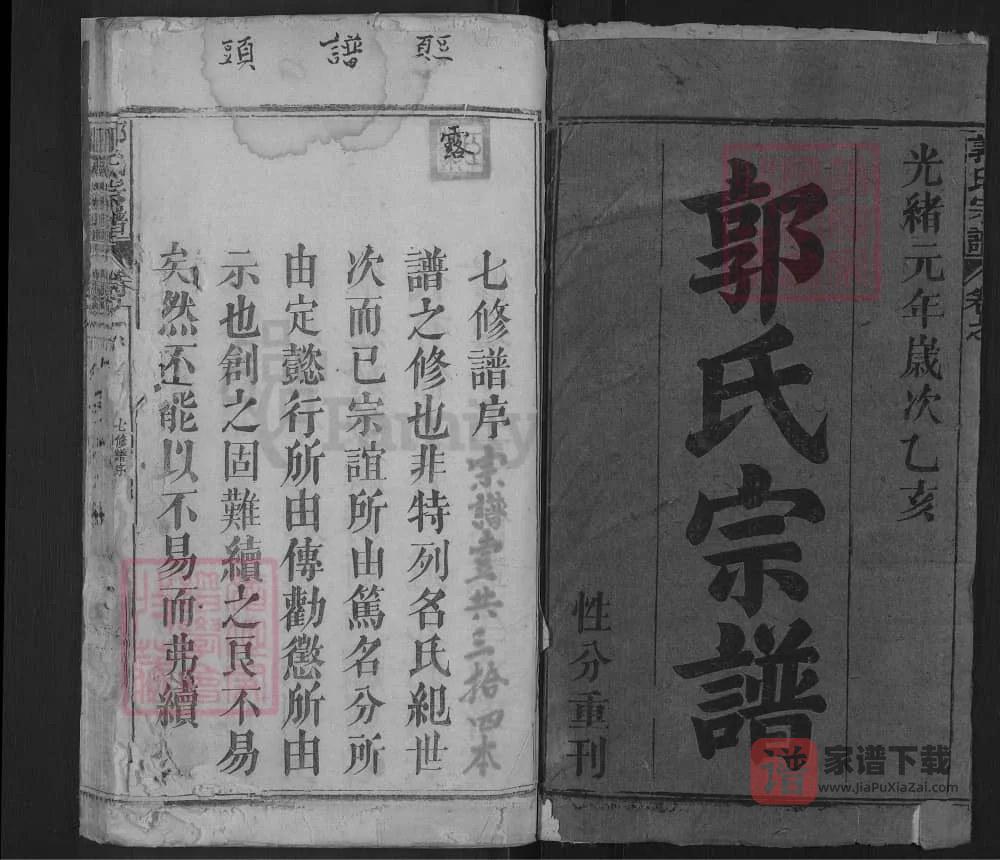 光緒元年歲次乙亥
郭氏宗譜
性分重刊
郭氏宗譜
卷之
譜頭
露
七修譜序
宗譜壹共三拾四本
譜之修也非特列名氏紀世
次而已宗誼所由篤名分所
由定懿行所由傳勸懲所由
示也創之固難續之良不易
矣然不能以不易而弗續
郭氏宗譜
七修譜序
Family
家谱下载
www.JiaPuXiaZai.com